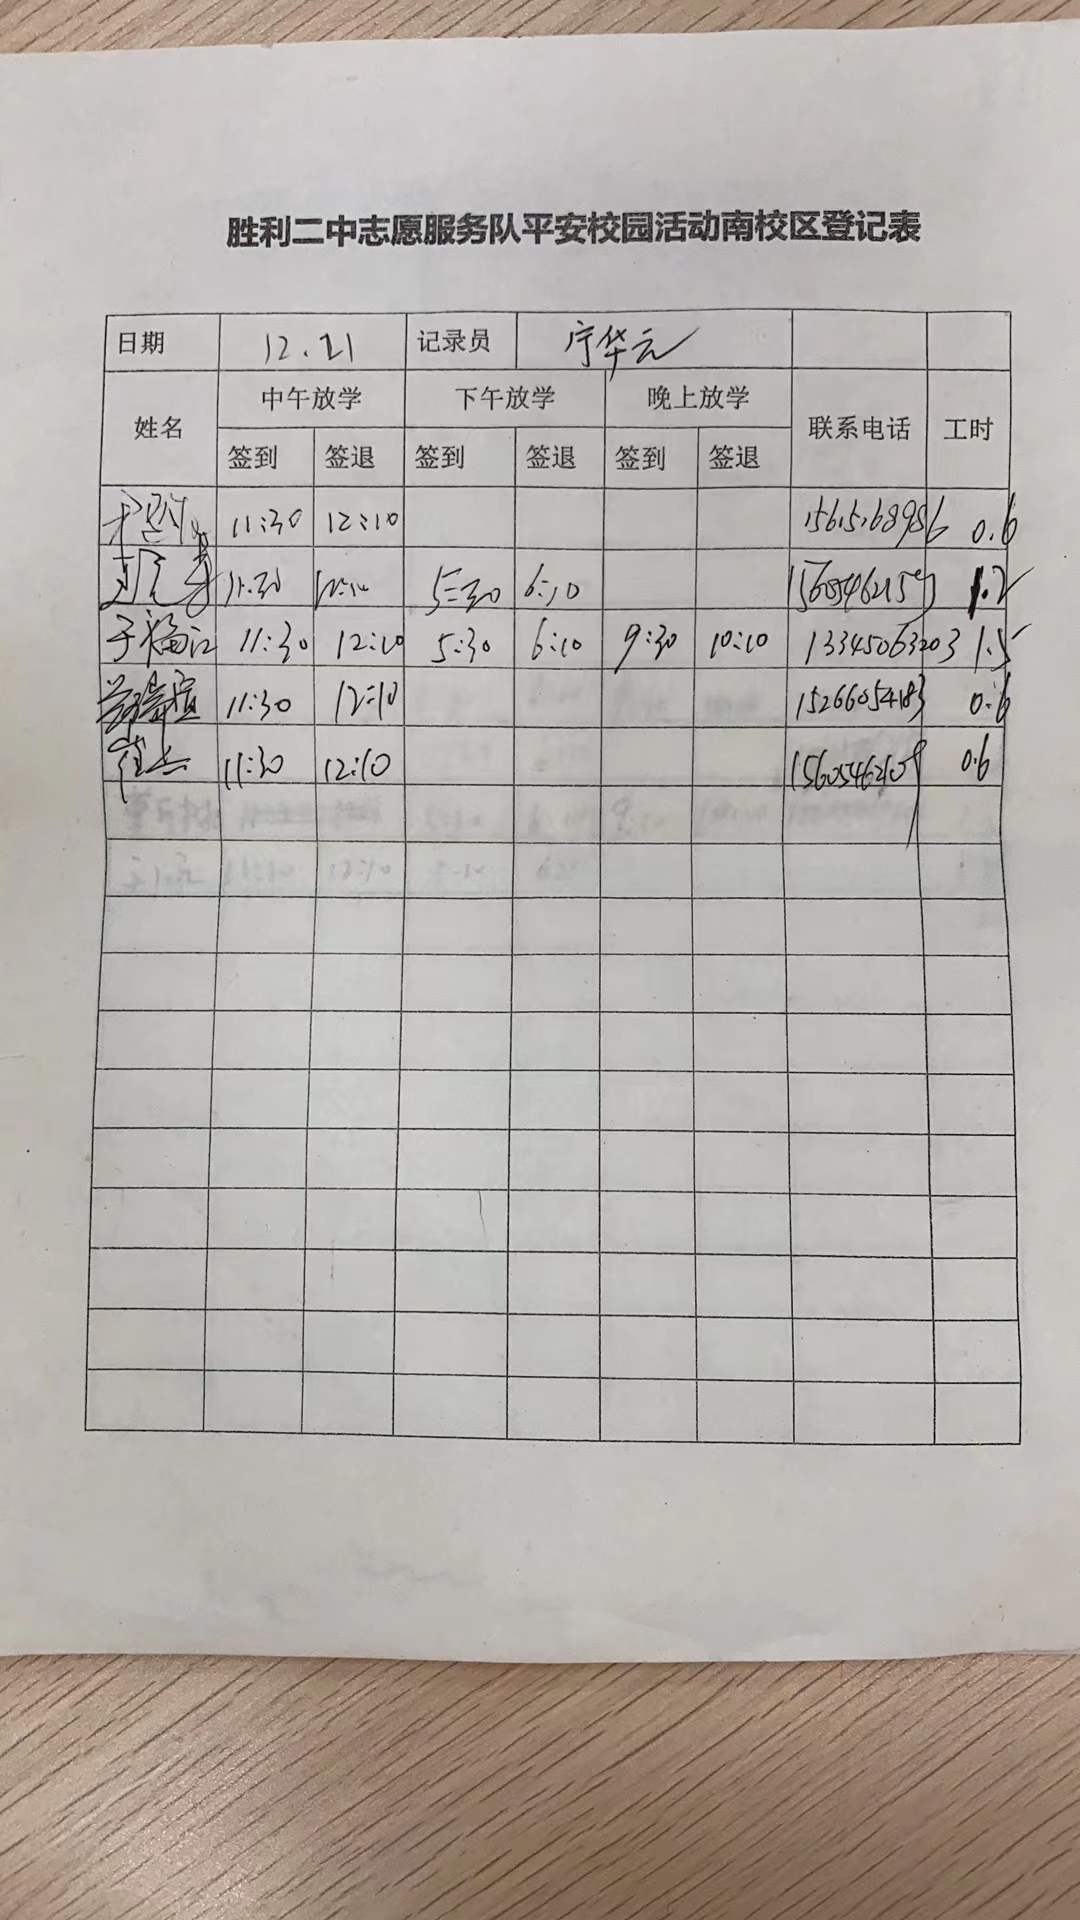 胜利二中志愿服务队平安校园活动南校区登记表
日期 12.21 记录员 宁华云
姓名 中午放学 下午放学 晚上放学 联系电话 工时
签到 签退 签到 签退 签到 签退
11:30 12:10 0.6
11:30 12:10 5:30 6:10 1.2
于福江 11:30 12:10 5:30 6:10 9:30 10:10 13345063203 1.5
11:30 12:10 15266054183 0.6
11:30 12:10 15605462109 0.6